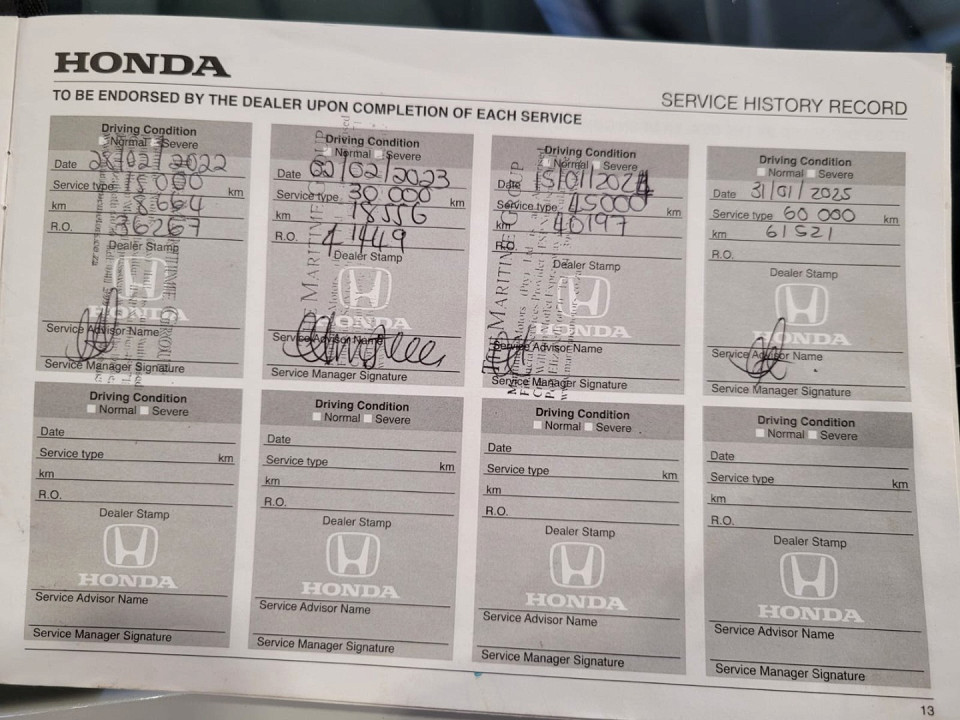 HONDA
TO BE ENDORSED BY THE DEALER UPON COMPLETION OF EACH SERVICE
SERVICE HISTORY RECORD
Driving Condition
Normal Severe
Date 28/02/2022
Service type 15 000 km
km 8664
R.O. 36267
Dealer Stamp
HONDA
MARITIME GROUP
Service Advisor Name
Service Manager Signature
Driving Condition
Normal Severe
Date 02/02/2023
Service type 30 000 km
km 18556
R.O. 41449
Dealer Stamp
HONDA
MARITIME
Service Advisor Name
Service Manager Signature
Driving Condition
Normal Severe
Date 15/01/2024
Service type 45000 km
km 40197
R.O.
Dealer Stamp
HONDA
THE MARITIME GROUP
Service Advisor Name
Service Manager Signature
Driving Condition
Normal Severe
Date 31/01/2025
Service type 60 000 km
km 61521
R.O.
Dealer Stamp
HONDA
Service Advisor Name
Service Manager Signature
Driving Condition
Normal Severe
Date
Service type km
km
R.O.
Dealer Stamp
HONDA
Service Advisor Name
Service Manager Signature
Driving Condition
Normal Severe
Date
Service type km
km
R.O.
Dealer Stamp
HONDA
Service Advisor Name
Service Manager Signature
Driving Condition
Normal Severe
Date
Service type km
km
R.O.
Dealer Stamp
HONDA
Service Advisor Name
Service Manager Signature
Driving Condition
Normal Severe
Date
Service type km
km
R.O.
Dealer Stamp
HONDA
Service Advisor Name
Service Manager Signature
13